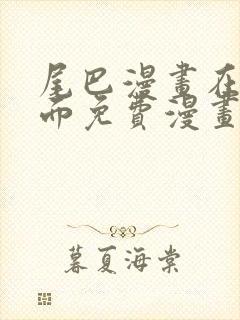 尾巴漫畫在
而免費漫畫
暮夏海棠